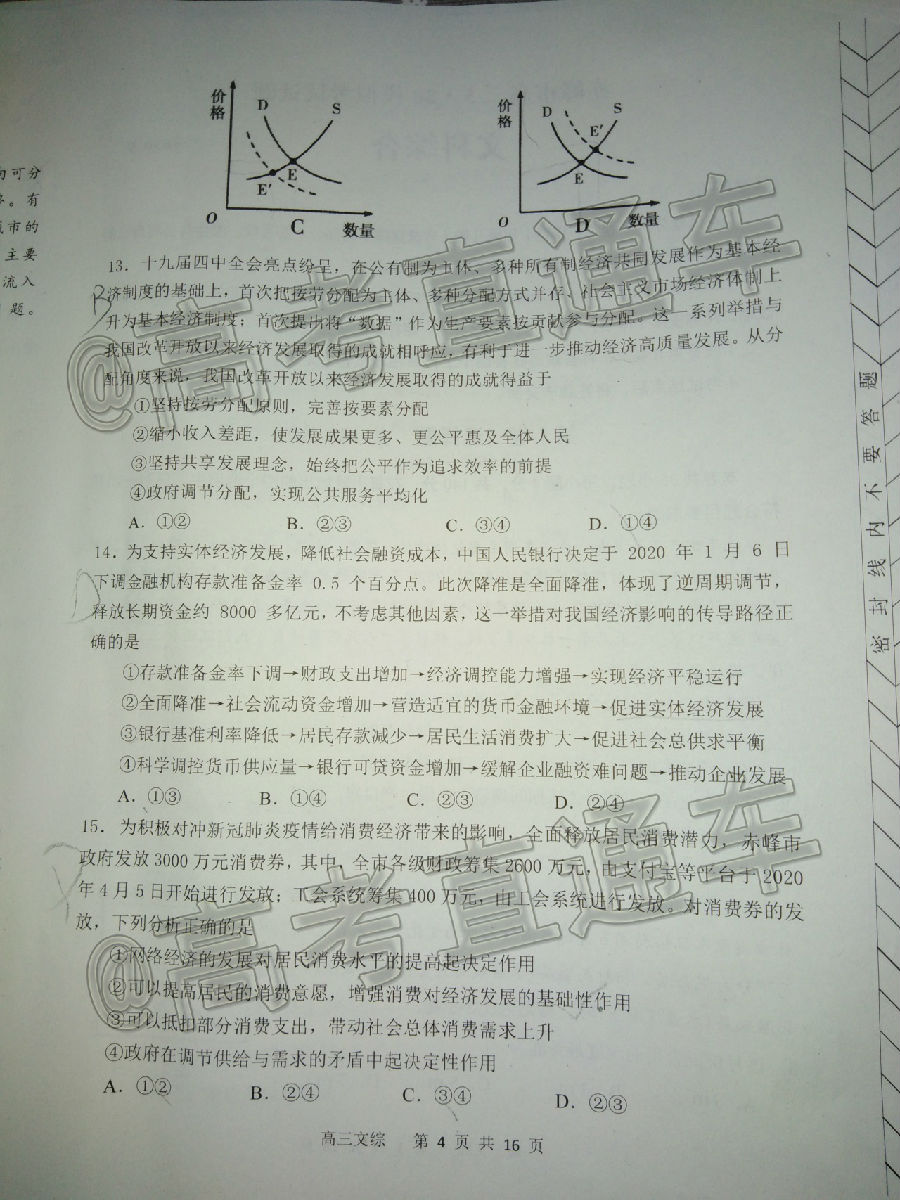 价格
D
S
E
E′
O
C
数量
价格
D
S
E′
E
O
D
数量
向可分
有
城市的
主要
流入
题。
13．十九届四中全会亮点纷呈，在公有制为主体、多种所有制经济共同发展作为基本经
济制度的基础上，首次把按劳分配为主体、多种分配方式并存、社会主义市场经济体制上
升为基本经济制度；首次提出将“数据”作为生产要素按贡献参与分配。这一系列举措与
我国改革开放以来经济发展取得的成就相呼应，有利于进一步推动经济高质量发展。从分
配角度来说，我国改革开放以来经济发展取得的成就得益于
①坚持按劳分配原则，完善按要素分配
②缩小收入差距，使发展成果更多、更公平惠及全体人民
③坚持共享发展理念，始终把公平作为追求效率的前提
④政府调节分配，实现公共服务平均化
A．①②  B．②③  C．③④  D．①④
14．为支持实体经济发展，降低社会融资成本，中国人民银行决定于 2020 年 1 月 6 日
下调金融机构存款准备金率 0.5 个百分点。此次降准是全面降准，体现了逆周期调节，
释放长期资金约 8000 多亿元，不考虑其他因素，这一举措对我国经济影响的传导路径正
确的是
①存款准备金率下调→财政支出增加→经济调控能力增强→实现经济平稳运行
②全面降准→社会流动资金增加→营造适宜的货币金融环境→促进实体经济发展
③银行基准利率降低→居民存款减少→居民生活消费扩大→促进社会总供求平衡
④科学调控货币供应量→银行可贷资金增加→缓解企业融资难问题→推动企业发展
A．①③  B．①④  C．②③  D．②④
15．为积极对冲新冠肺炎疫情给消费经济带来的影响，全面释放居民消费潜力，赤峰市
政府发放3000万元消费券，其中，全市各级财政筹集2600万元，由支付宝等平台于2020
年4月5日开始进行发放；工会系统筹集400万元，由工会系统进行发放。对消费券的发
放，下列分析正确的是
①网络经济的发展对居民消费水平的提高起决定作用
②可以提高居民的消费意愿，增强消费对经济发展的基础性作用
③可以抵扣部分消费支出，带动社会总体消费需求上升
④政府在调节供给与需求的矛盾中起决定性作用
A．①②  B．②④  C．③④  D．②③
高三文综  第 4 页 共 16 页
密封线内不要答题
@高考直通车
@高考直通车